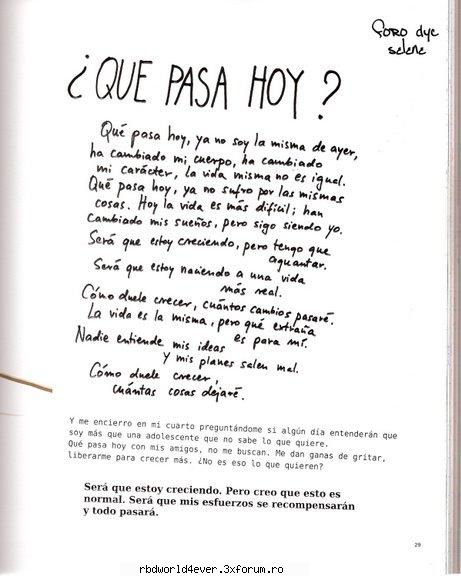 Foro dye
selene
¿QUE PASA HOY?
Qué pasa hoy, ya no soy la misma de ayer,
ha cambiado mi cuerpo, ha cambiado
mi carácter, la vida misma no es igual.
Qué pasa hoy, ya no sufro por las mismas
cosas. Hoy la vida es más difícil; han
cambiado mis sueños, pero sigo siendo yo.
Será que estoy creciendo, pero tengo que
aguantar.
Será que estoy naciendo a una vida
más real.
Cómo duele crecer, cuántos cambios pasaré.
La vida es la misma, pero qué extraña
es para mí.
Nadie entiende mis ideas
y mis planes salen mal.
Cómo duele crecer,
cuántas cosas dejaré.
Y me encierro en mi cuarto preguntándome si algún día entenderán que
soy más que una adolescente que no sabe lo que quiere.
Qué pasa hoy con mis amigos, no me buscan. Me dan ganas de gritar,
liberarme para crecer más. ¿No es eso lo que quieren?
Será que estoy creciendo. Pero creo que esto es
normal. Será que mis esfuerzos se recompensarán
y todo pasará.
29
rbdworld4ever.3xforum.ro